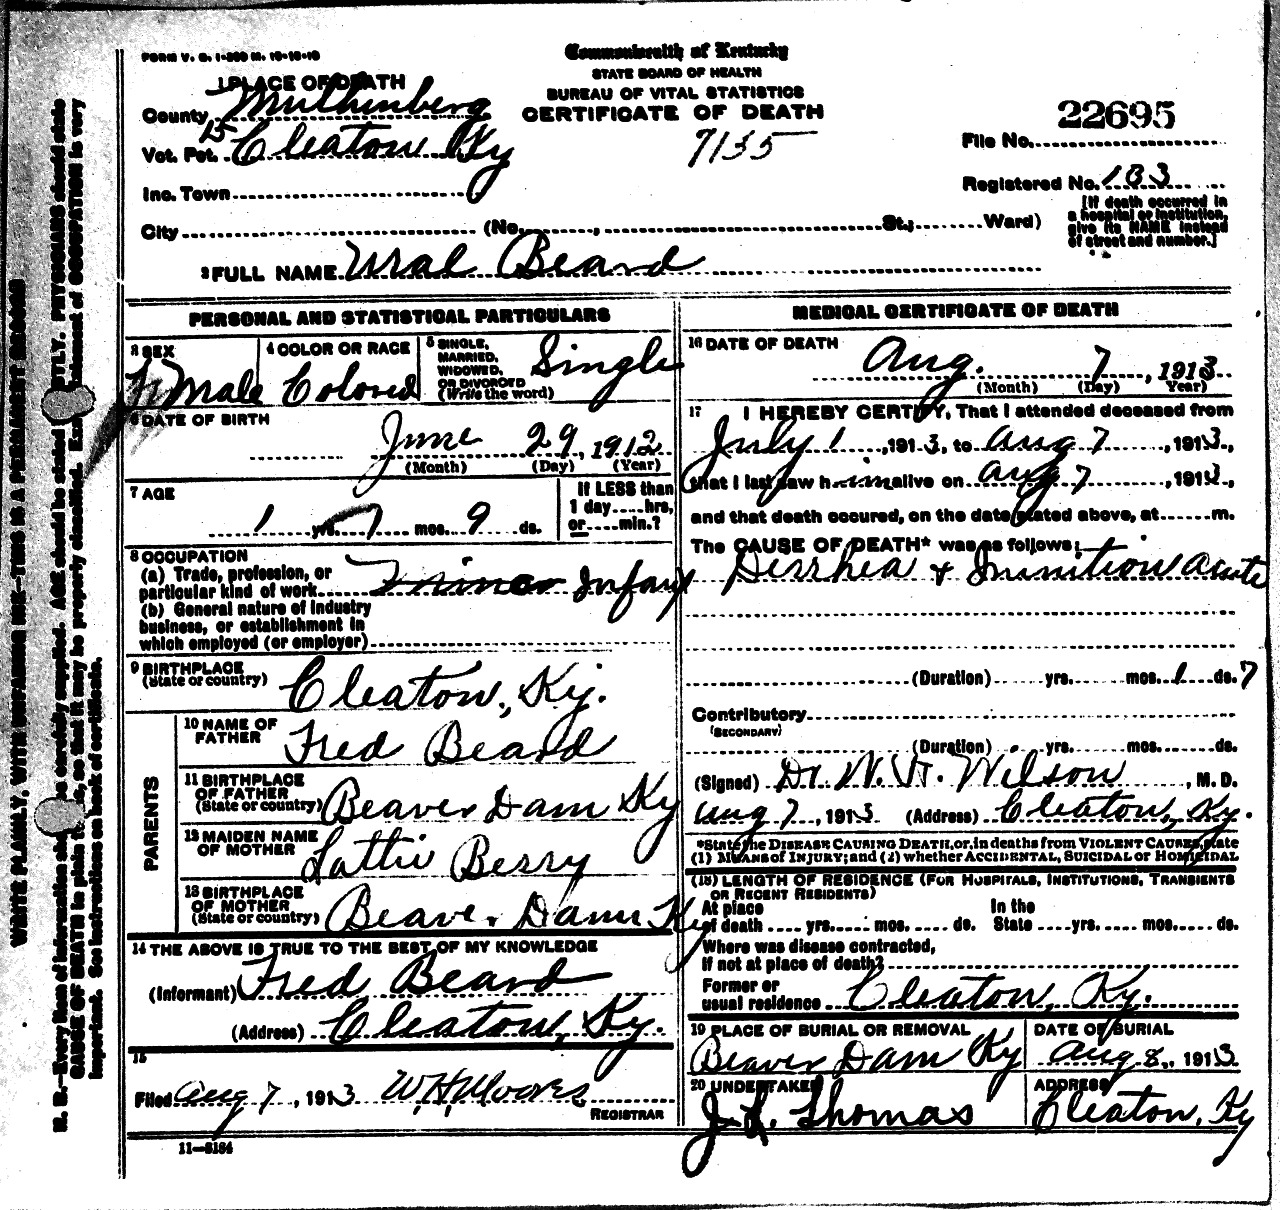 FORM V. S. 1-300 M. 10-10-10
Commonwealth of Kentucky
STATE BOARD OF HEALTH
BUREAU OF VITAL STATISTICS
CERTIFICATE OF DEATH
7135
22695
File No.
Registered No. 183
[If death occurred in
a hospital or institution,
give its NAME instead
of street and number.]
1 PLACE OF DEATH
County Muthinberg
15
Vot. Pct. Cleaton Ky
Inc. Town
City (No. , St.; Ward)
2 FULL NAME Ural Beard
PERSONAL AND STATISTICAL PARTICULARS
3 SEX
Male
4 COLOR OR RACE
Colored
5 SINGLE,
MARRIED,
WIDOWED,
OR DIVORCED
(Write the word)
Single
6 DATE OF BIRTH
June 29, 1912
(Month) (Day) (Year)
7 AGE
1 yrs. 1 mos. 9 ds.
If LESS than
1 day....hrs,
or....min.?
8 OCCUPATION
(a) Trade, profession, or
particular kind of work Infant
(b) General nature of industry
business, or establishment in
which employed (or employer)
9 BIRTHPLACE
(State or country)
Cleaton, Ky.
PARENTS
10 NAME OF
FATHER
Fred Beard
11 BIRTHPLACE
OF FATHER
(State or country)
Beaver Dam Ky
12 MAIDEN NAME
OF MOTHER
Lattie Berry
13 BIRTHPLACE
OF MOTHER
(State or country)
Beaver Dam Ky
14 THE ABOVE IS TRUE TO THE BEST OF MY KNOWLEDGE
(Informant) Fred Beard
(Address) Cleaton, Ky.
15
Filed Aug 7, 1913 W.H. Moores
REGISTRAR
11-3184
MEDICAL CERTIFICATE OF DEATH
16 DATE OF DEATH
Aug. 7, 1913
(Month) (Day) (Year)
17 I HEREBY CERTIFY, That I attended deceased from
July 1, 1913, to Aug 7, 1913,
that I last saw him alive on Aug 7, 1913
and that death occured, on the date stated above, at......m.
The CAUSE OF DEATH* was as follows:
Dirrhea + Innition acute
(Duration) yrs. mos. 1 ds. 7
Contributory
(SECONDARY)
(Duration) yrs. mos. ds.
(Signed) Dr. W. H. Wilson, M. D.
Aug 7, 1913 (Address) Cleaton, Ky.
*State the DISEASE CAUSING DEATH, or, in deaths from VIOLENT CAUSES, state
(1) MEANS of INJURY; and (2) whether ACCIDENTAL, SUICIDAL or HOMICIDAL
(18) LENGTH OF RESIDENCE (FOR HOSPITALS, INSTITUTIONS, TRANSIENTS
OR RECENT RESIDENTS)
At place In the
of death yrs. mos. ds. State yrs. mos. ds.
Where was disease contracted,
if not at place of death?
Former or
usual residence Cleaton, Ky.
19 PLACE OF BURIAL OR REMOVAL
Beaver Dam Ky
DATE OF BURIAL
Aug 8, 1913
20 UNDERTAKER
J. L. Thomas
ADDRESS
Cleaton, Ky